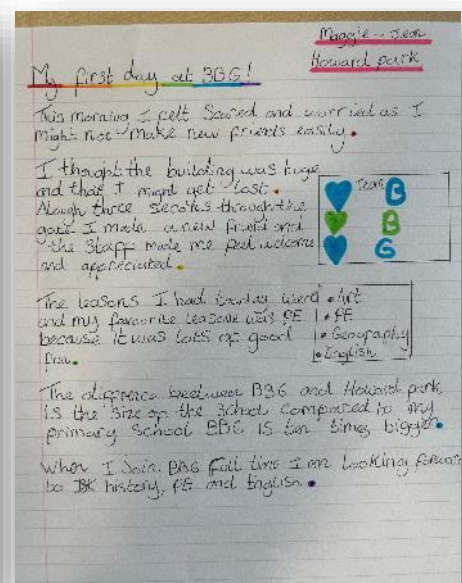 Maggie - Jean
Howard park
My first day at BBG!
This morning I felt Scared and worried as I
might not make new friends easily.
I thought the building was huge
and that I might get lost.
Alough three seconds through the
gate I made a new friend and
the Staff made me feel welcome
and appreciated.
Team B
B
G
The leasons I had today were
and my favourite leasone was PE
because it was lots of good
fun.
• Art
• PE
• Geography
• English
The difference between BBG and Howard park
is the size of the School compared to my
primary School BBG is ten times bigger.
When I Join BBG full time I am looking forward
to history, PE and English.